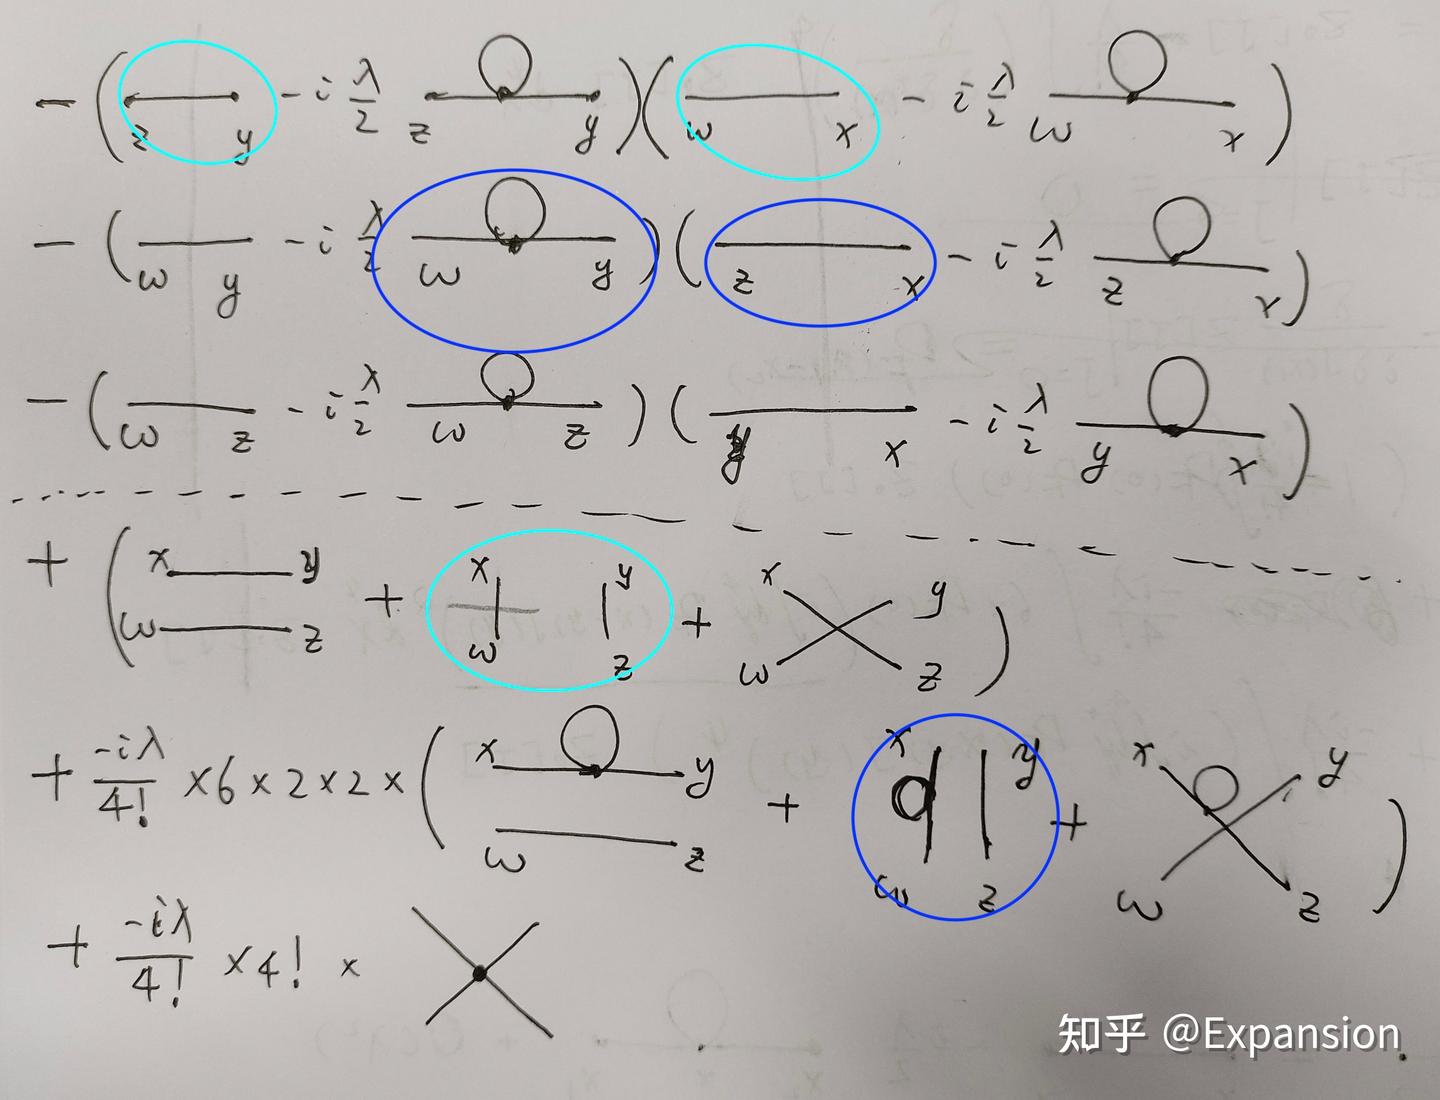 - ( z y - i λ/2 z y ) ( w x - i λ/2 w x )
- ( w y - i λ/2 w y ) ( z x - i λ/2 z x )
- ( w z - i λ/2 w z ) ( y x - i λ/2 y x )
+ ( x y w z + x y w z + x y w z )
+ -iλ/4! × 6 × 2 × 2 × ( x y w z + x y w z + x y w z )
+ -iλ/4! × 4! ×
知乎 @Expansion